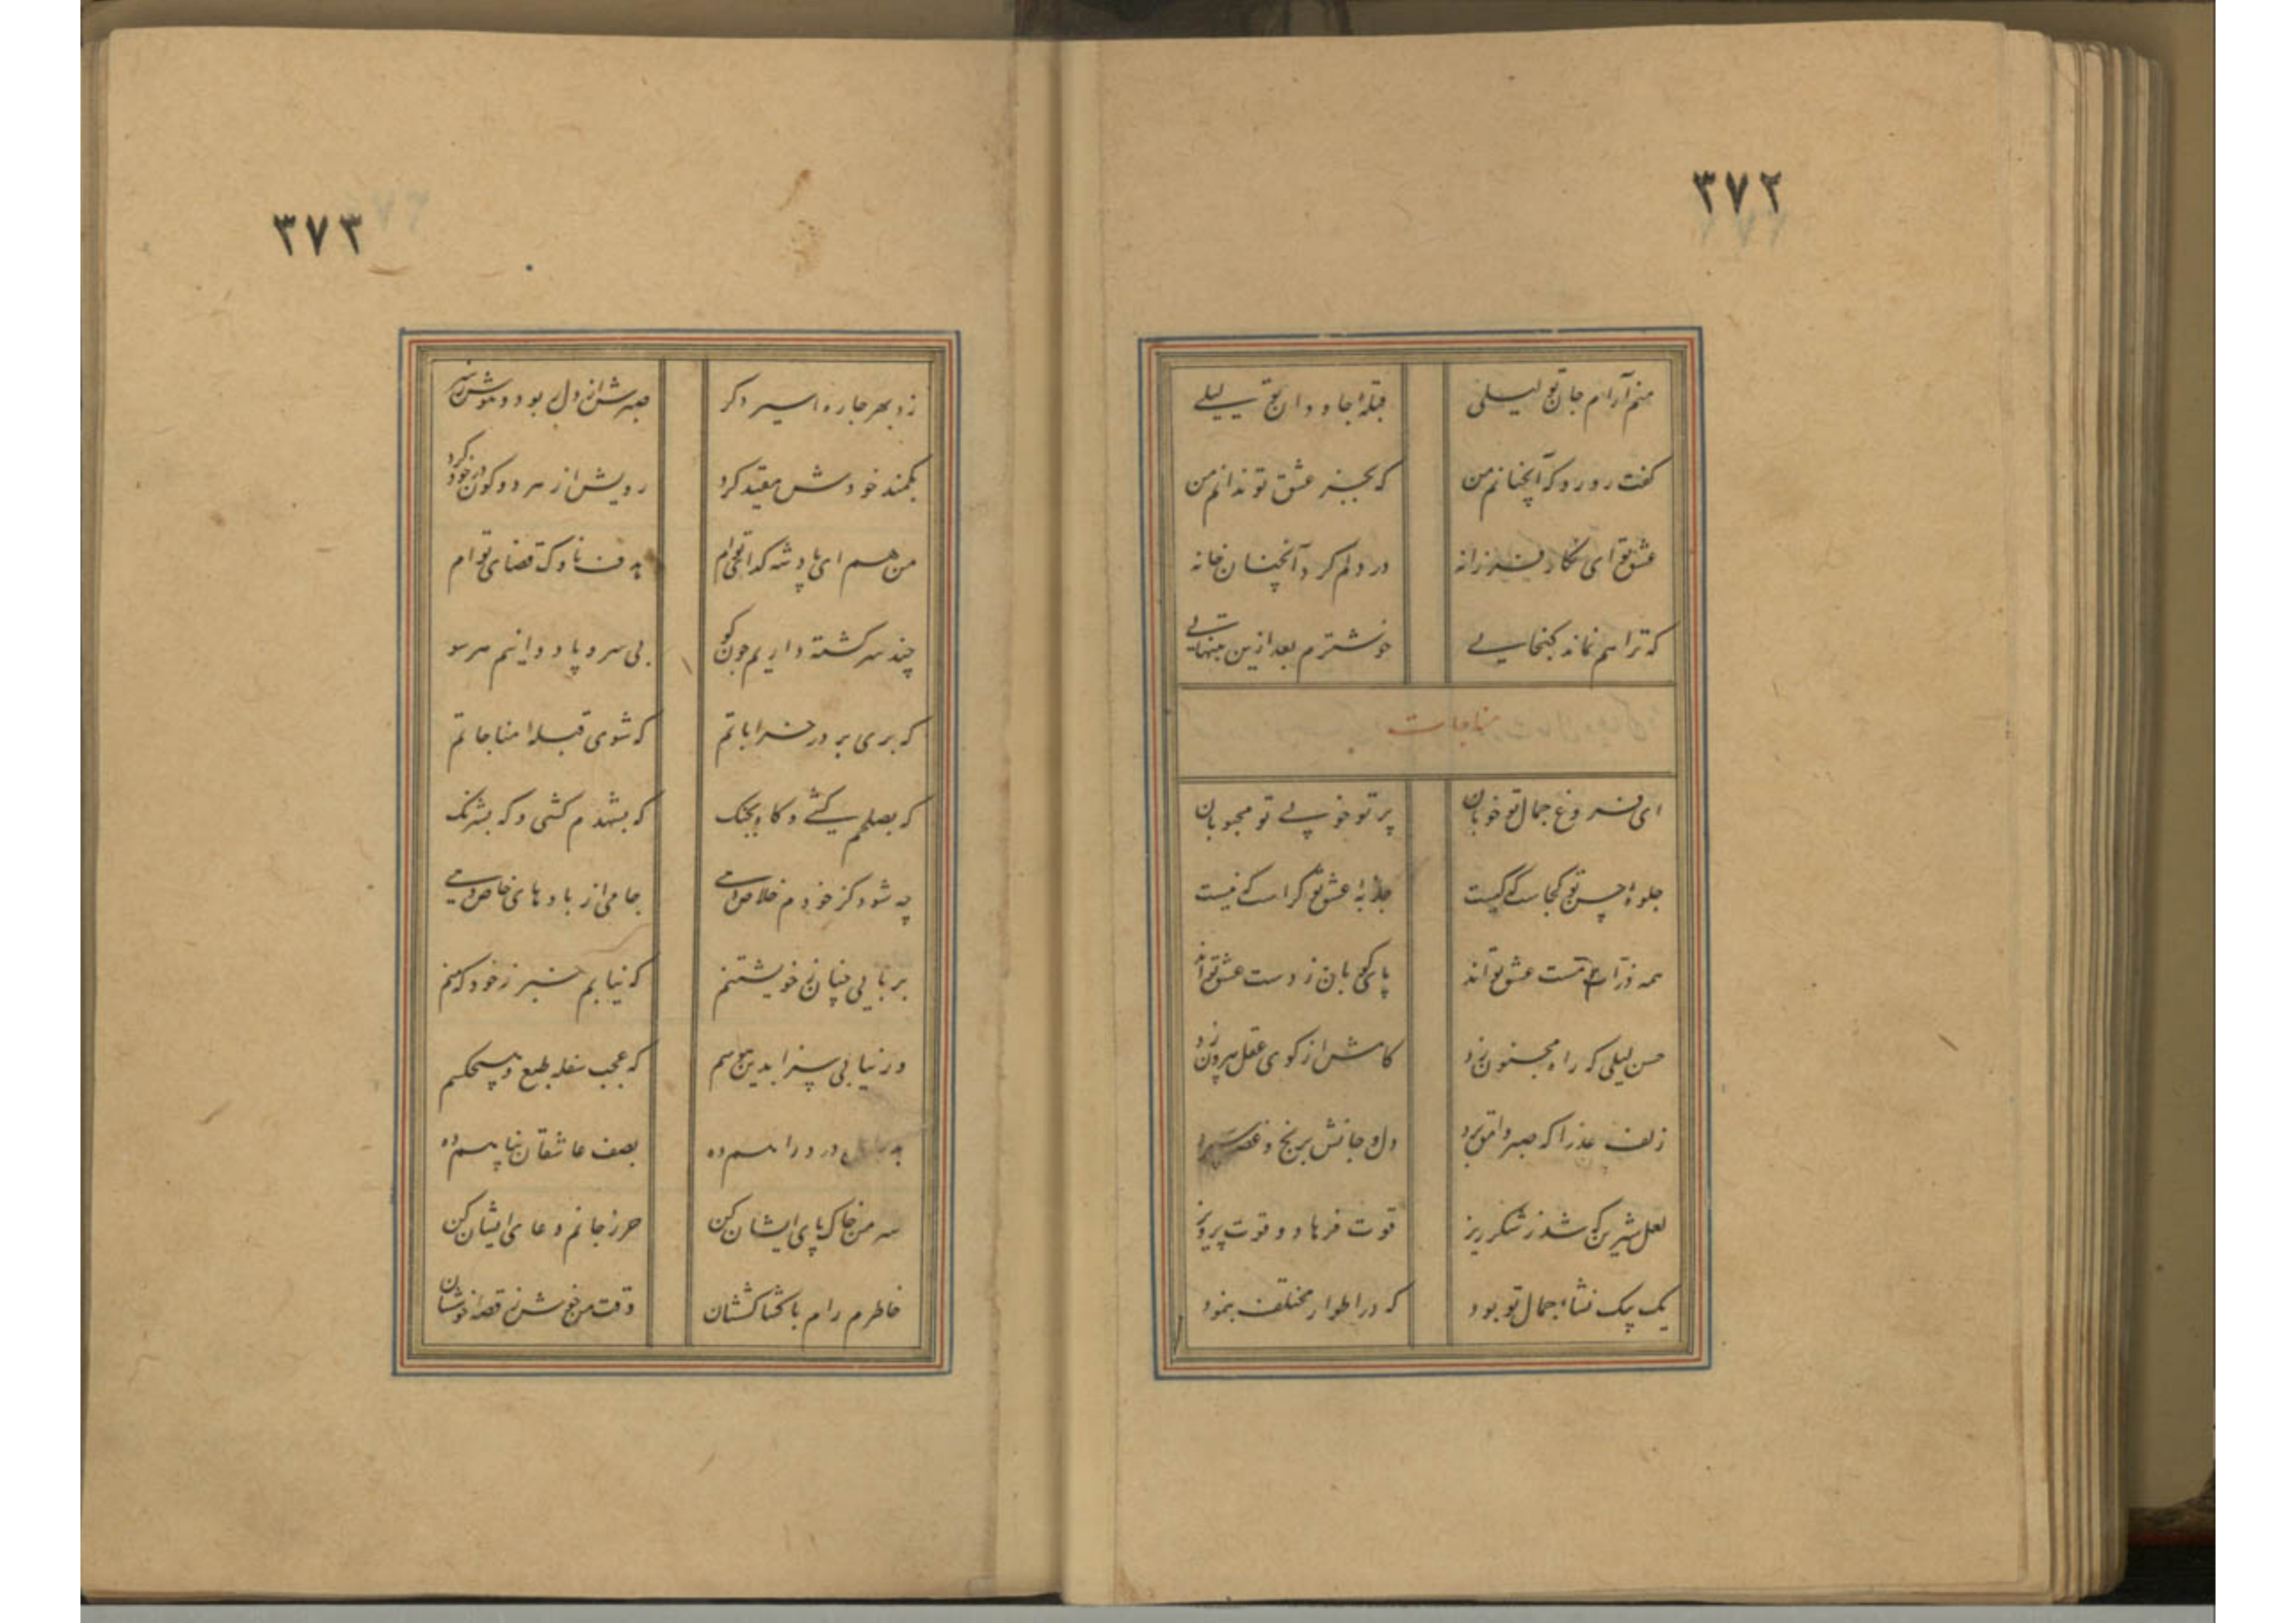 ٣٧٢
منم آرام جان تو لیلی قبلهٔ جاودان تو لیلی
گفت رو رو که آنچنانم من که بجز عشق تو ندانم من
عشق تو ای نگار فرزانه در دلم کرد آنچنان خانه
که ترا هم نماند گنجایی خوشترم بعد ازین بتنهایی
مناجات
ای فروغ جمال تو خوبان پرتو خوبی تو محبوبان
جلوهٔ حسن تو کجاست که نیست جذبهٔ عشق تو کراست که نیست
همه ذرات مست عشق تو اند پای کوبان ز دست عشق تو اند
حسن لیلی که راه مجنون زد گامش از کوی عقل بیرون زد
زلف عذرا که صبر وامق برد دل و جانش برنج و غصه سپرد
لعل شیرین که شد ز شکر ریز قوت فرهاد و قوت پرویز
یک بیک نشاءه جمال تو بود که در اطوار مختلف بنمود
٣٧٣
زد بهر جا ره اسیر دگر صبرش از دل ربود و هوش ز سر
بکمند خودش مقید کرد رویش از هر دو کون در خود کرد
من هم ای پادشه گدای توام هدف ناوک قضای توام
چند سرگشته داریم چون گو بی سر و پا دوانیم هر سو
که بری بر در خراباتم که شوی قبله مناجاتم
که بصلحم کشی و گاه بجنگ که بشهدم کشی و که بشرنگ
چه شود کز خودم خلاص دهی جامی از بادهای خاص دهی
بربایی چنان ز خویشتنم که نیابم خبر ز خود که منم
ور نیابی سزا بدین هوسم که عجب سفله طبع و هیچکسم
درد را هم ده بصف عاشقان پناهم ده
سر من خاک پای ایشان کن حرز جانم دعای ایشان کن
خاطرم رام با کشاکششان وقت من خوش ز قصه خوششان